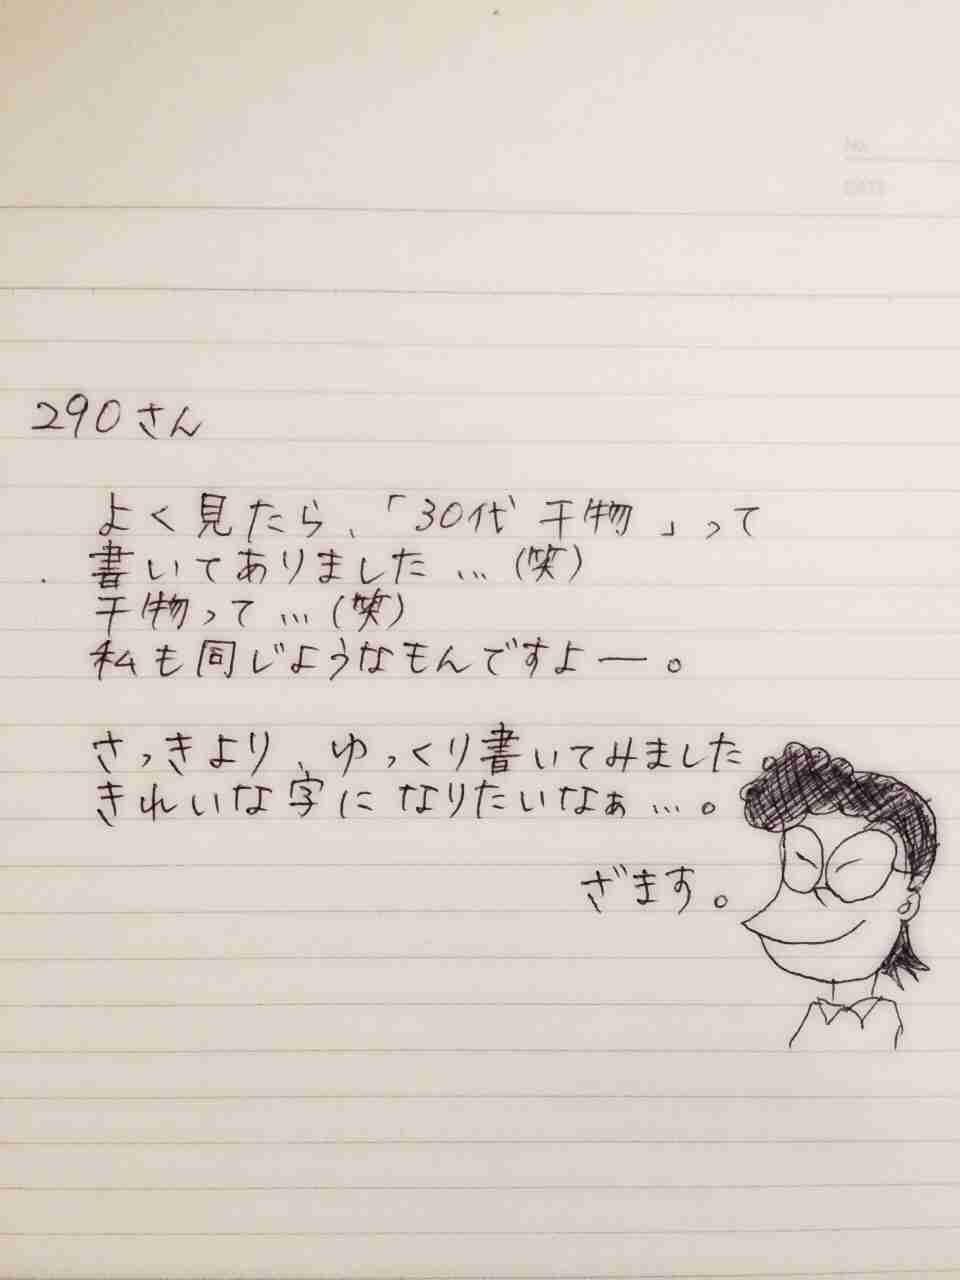 290さん
よく見たら、「30代 干物」って
書いてありました…(笑)
干物って…(笑)
私も同じようなもんですよー。
さっきより、ゆっくり書いてみました
きれいな字になりたいなぁ…。
ざます。